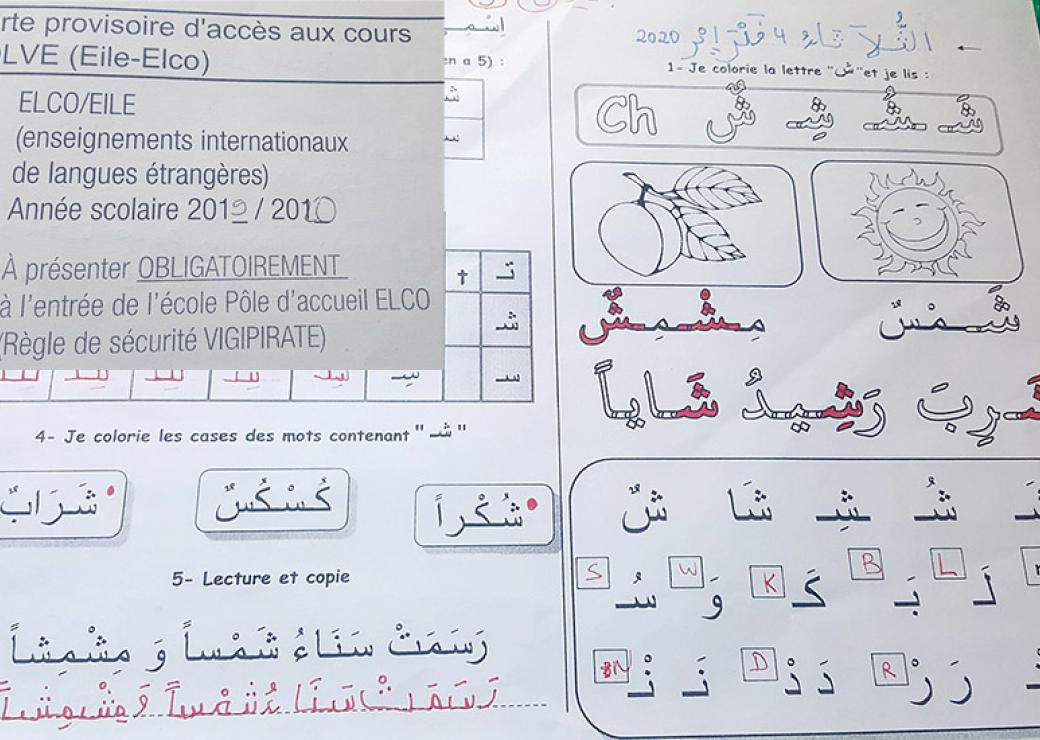 rte provisoire d'accès aux cours
LVE (Eile-Elco)
ELCO/EILE
(enseignements internationaux
de langues étrangères)
Année scolaire 2019 / 2010
À présenter OBLIGATOIREMENT
à l'entrée de l'école Pôle d'accueil ELCO
(Règle de sécurité VIGIPIRATE)
en a 5) :
تـ
شـ
سـ
4- Je colorie les cases des mots contenant " شـ "
شُكْراً
كُسْكُسٌ
شَرَابٌ
5- Lecture et copie
رَسَمَتْ سَنَاءُ شَمْساً وَ مِشْمِشاً
رَسَمَتْ سَنَاءُ شَمْساً وَ مِشْمِشاً
الثُّلَاثَاءُ 4 فَبْرَايِر 2020
1- Je colorie la lettre "ش" et je lis :
شَـ شُـ شِـ شٌ Ch
شَـمْـسٌ مِـشْـمِـشٌ
شَرِبَ رَشِيدُ شَاياً
شُـ شِـ شَا شٌ
لَـ L بَـ B كَـ K وَ W سُـ S
رَ رْ R دَ دْ D نَـ نْـ N